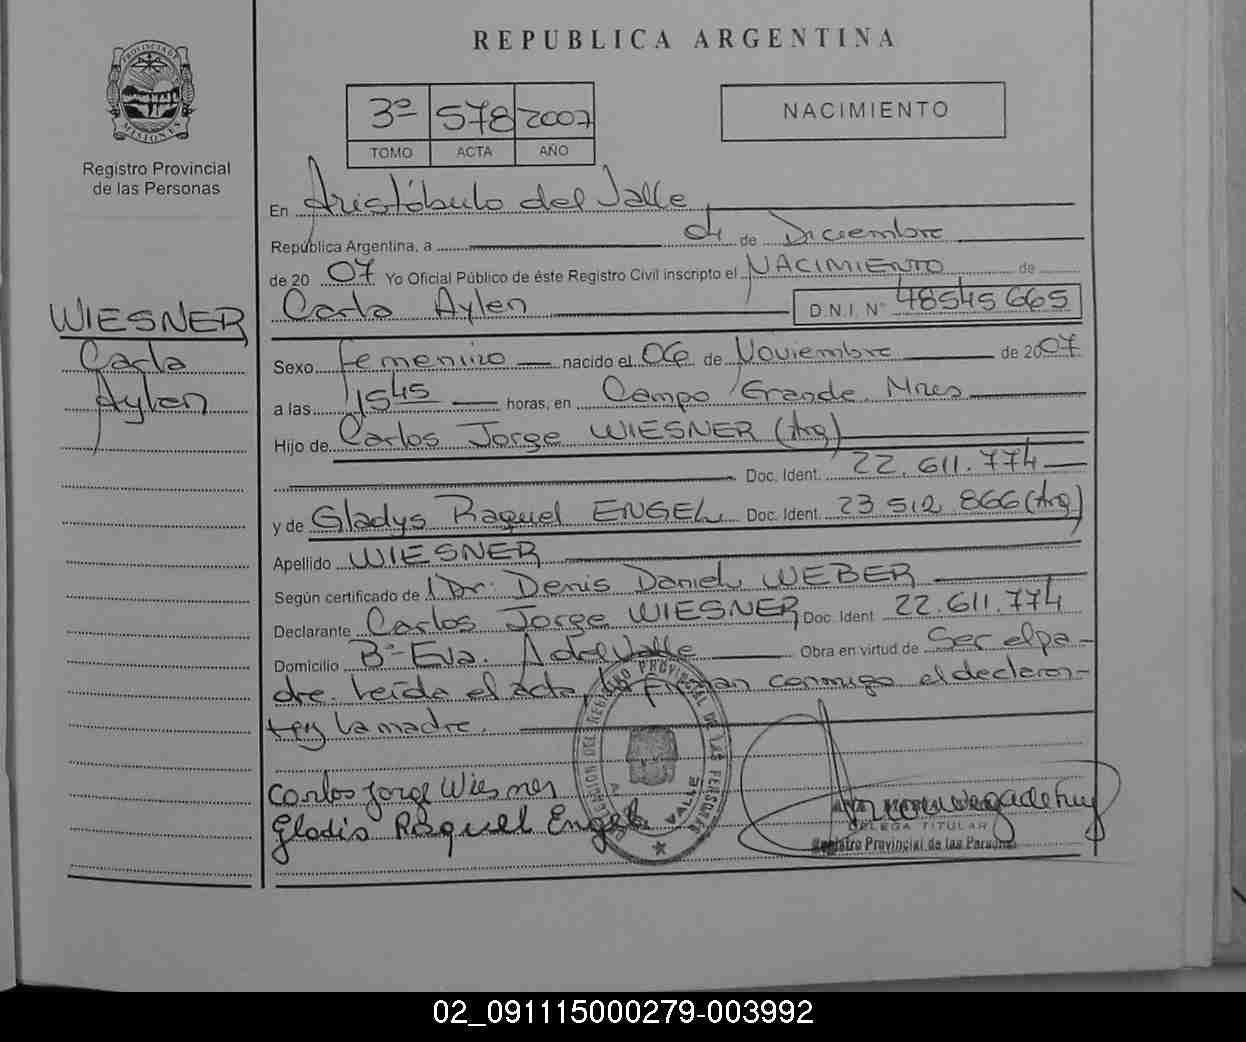 REPUBLICA ARGENTINA
PROVINCIA DE
MISIONES
Registro Provincial
de las Personas
3º 578 2007
TOMO ACTA AÑO
NACIMIENTO
En Aristóbulo del Valle
República Argentina, a 04 de Diciembre
de 20 07 Yo Oficial Público de éste Registro Civil inscripto el NACIMIENTO de
Carla Aylen D.N.I. Nº 48545665
WIESNER
Carla
Aylen
Sexo femenino nacido el 06 de Noviembre de 2007
a las 15 45 horas, en Campo Grande. Mnes
Hijo de Carlos Jorge WIESNER (Arg)
Doc. Ident. 22.611.774
y de Gladys Raquel ENGEL Doc. Ident. 23 512 866 (Arg)
Apellido WIESNER
Según certificado de Dr: Denis Daniel WEBER
Declarante Carlos Jorge WIESNER Doc. Ident 22.611.774
Domicilio Bº Eva. A del Valle Obra en virtud de Ser el pa-
dre. Leída el acta, la firman conmigo el declaran-
te y la madre.
Carlos Jorge Wiesner
Gladis Raquel Engel
DELEGACION DEL REGISTRO PROVINCIAL DE LAS PERSONAS
VALLE
DELEGA TITULAR
Registro Provincial de las Personas
02_091115000279-003992